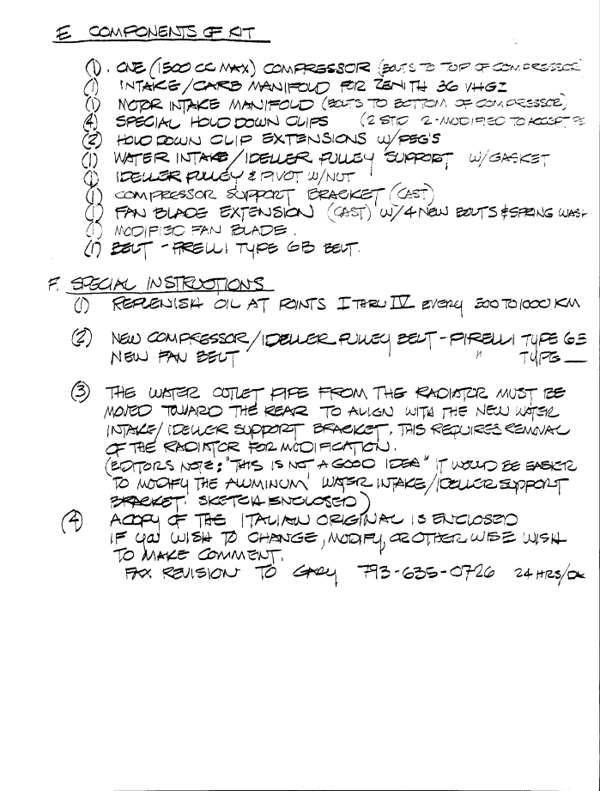 E COMPONENTS OF KIT
(1). ONE (1500 CC MAX) COMPRESSOR (BOLTS TO TOP OF COMPRESSOR
(1) INTAKE/CARB MANIFOLD FOR ZENITH 36 VHG
(1) MOTOR INTAKE MANIFOLD (BOLTS TO BOTTOM OF COMPRESSOR)
(4) SPECIAL HOLD DOWN CLIPS (2 STD 2-MODIFIED TO ACCEPT
(2) HOLD DOWN CLIP EXTENSIONS W/PEG'S
(1) WATER INTAKE/IDELLER PULLEY SUPPORT W/GASKET
(1) IDELLER PULLEY & PIVOT W/NUT
(1) COMPRESSOR SUPPORT BRACKET (CAST)
(1) FAN BLADE EXTENSION (CAST) W/4 NEW BOLTS & SPRING WASH
(1) MODIFIED FAN BLADE.
(1) BELT - PIRELLI TYPE 63 BELT.
F. SPECIAL INSTRUCTIONS
(1) REPLENISH OIL AT POINTS I THRU IV EVERY 500 TO 1000 KM
(2) NEW COMPRESSOR/IDELLER PULLEY BELT - PIRELLI TYPE 63
NEW FAN BELT " TYPE ___
(3) THE WATER OUTLET PIPE FROM THE RADIATOR MUST BE
MOVED TOWARD THE REAR TO ALIGN WITH THE NEW WATER
INTAKE/IDELLER SUPPORT BRACKET. THIS REQUIRES REMOVAL
OF THE RADIATOR FOR MODIFICATION.
(EDITORS NOTE; "THIS IS NOT A GOOD IDEA" IT WOULD BE EASIER
TO MODIFY THE ALUMINUM WATER INTAKE/IDELLER SUPPORT
BRACKET. SKETCH ENCLOSED)
(4) A COPY OF THE ITALIAN ORIGINAL IS ENCLOSED
IF YOU WISH TO CHANGE, MODIFY, OR OTHER WISE WISH
TO MAKE COMMENT.
FAX REVISION TO GARY 793-635-0726 24 HRS/DA